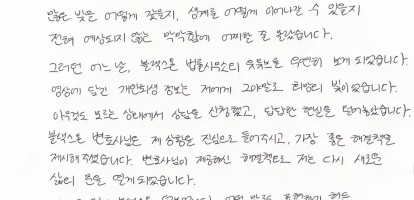 많은 빚을 어떻게 갚을지, 생계를 어떻게 이어나갈 수 있을지
전혀 예상되지 않는 막막함에 어찌할 줄 몰랐습니다.
그러던 어느 날, 블랙스톤 법률사무소의 유튜브를 우연히 보게 되었습니다.
영상에 담긴 개인회생 정보는 저에게 그야말로 희망의 빛이었습니다.
아무것도 모르는 상태에서 상담을 신청했고, 답답한 현실을 털어놓았습니다.
블랙스톤 변호사님은 제 상황을 진심으로 들어주시고, 가장 좋은 해결책을
제시해주셨습니다. 변호사님이 제공하신 해결책으로 저는 다시 새로운
삶의 문을 열게 되었습니다.